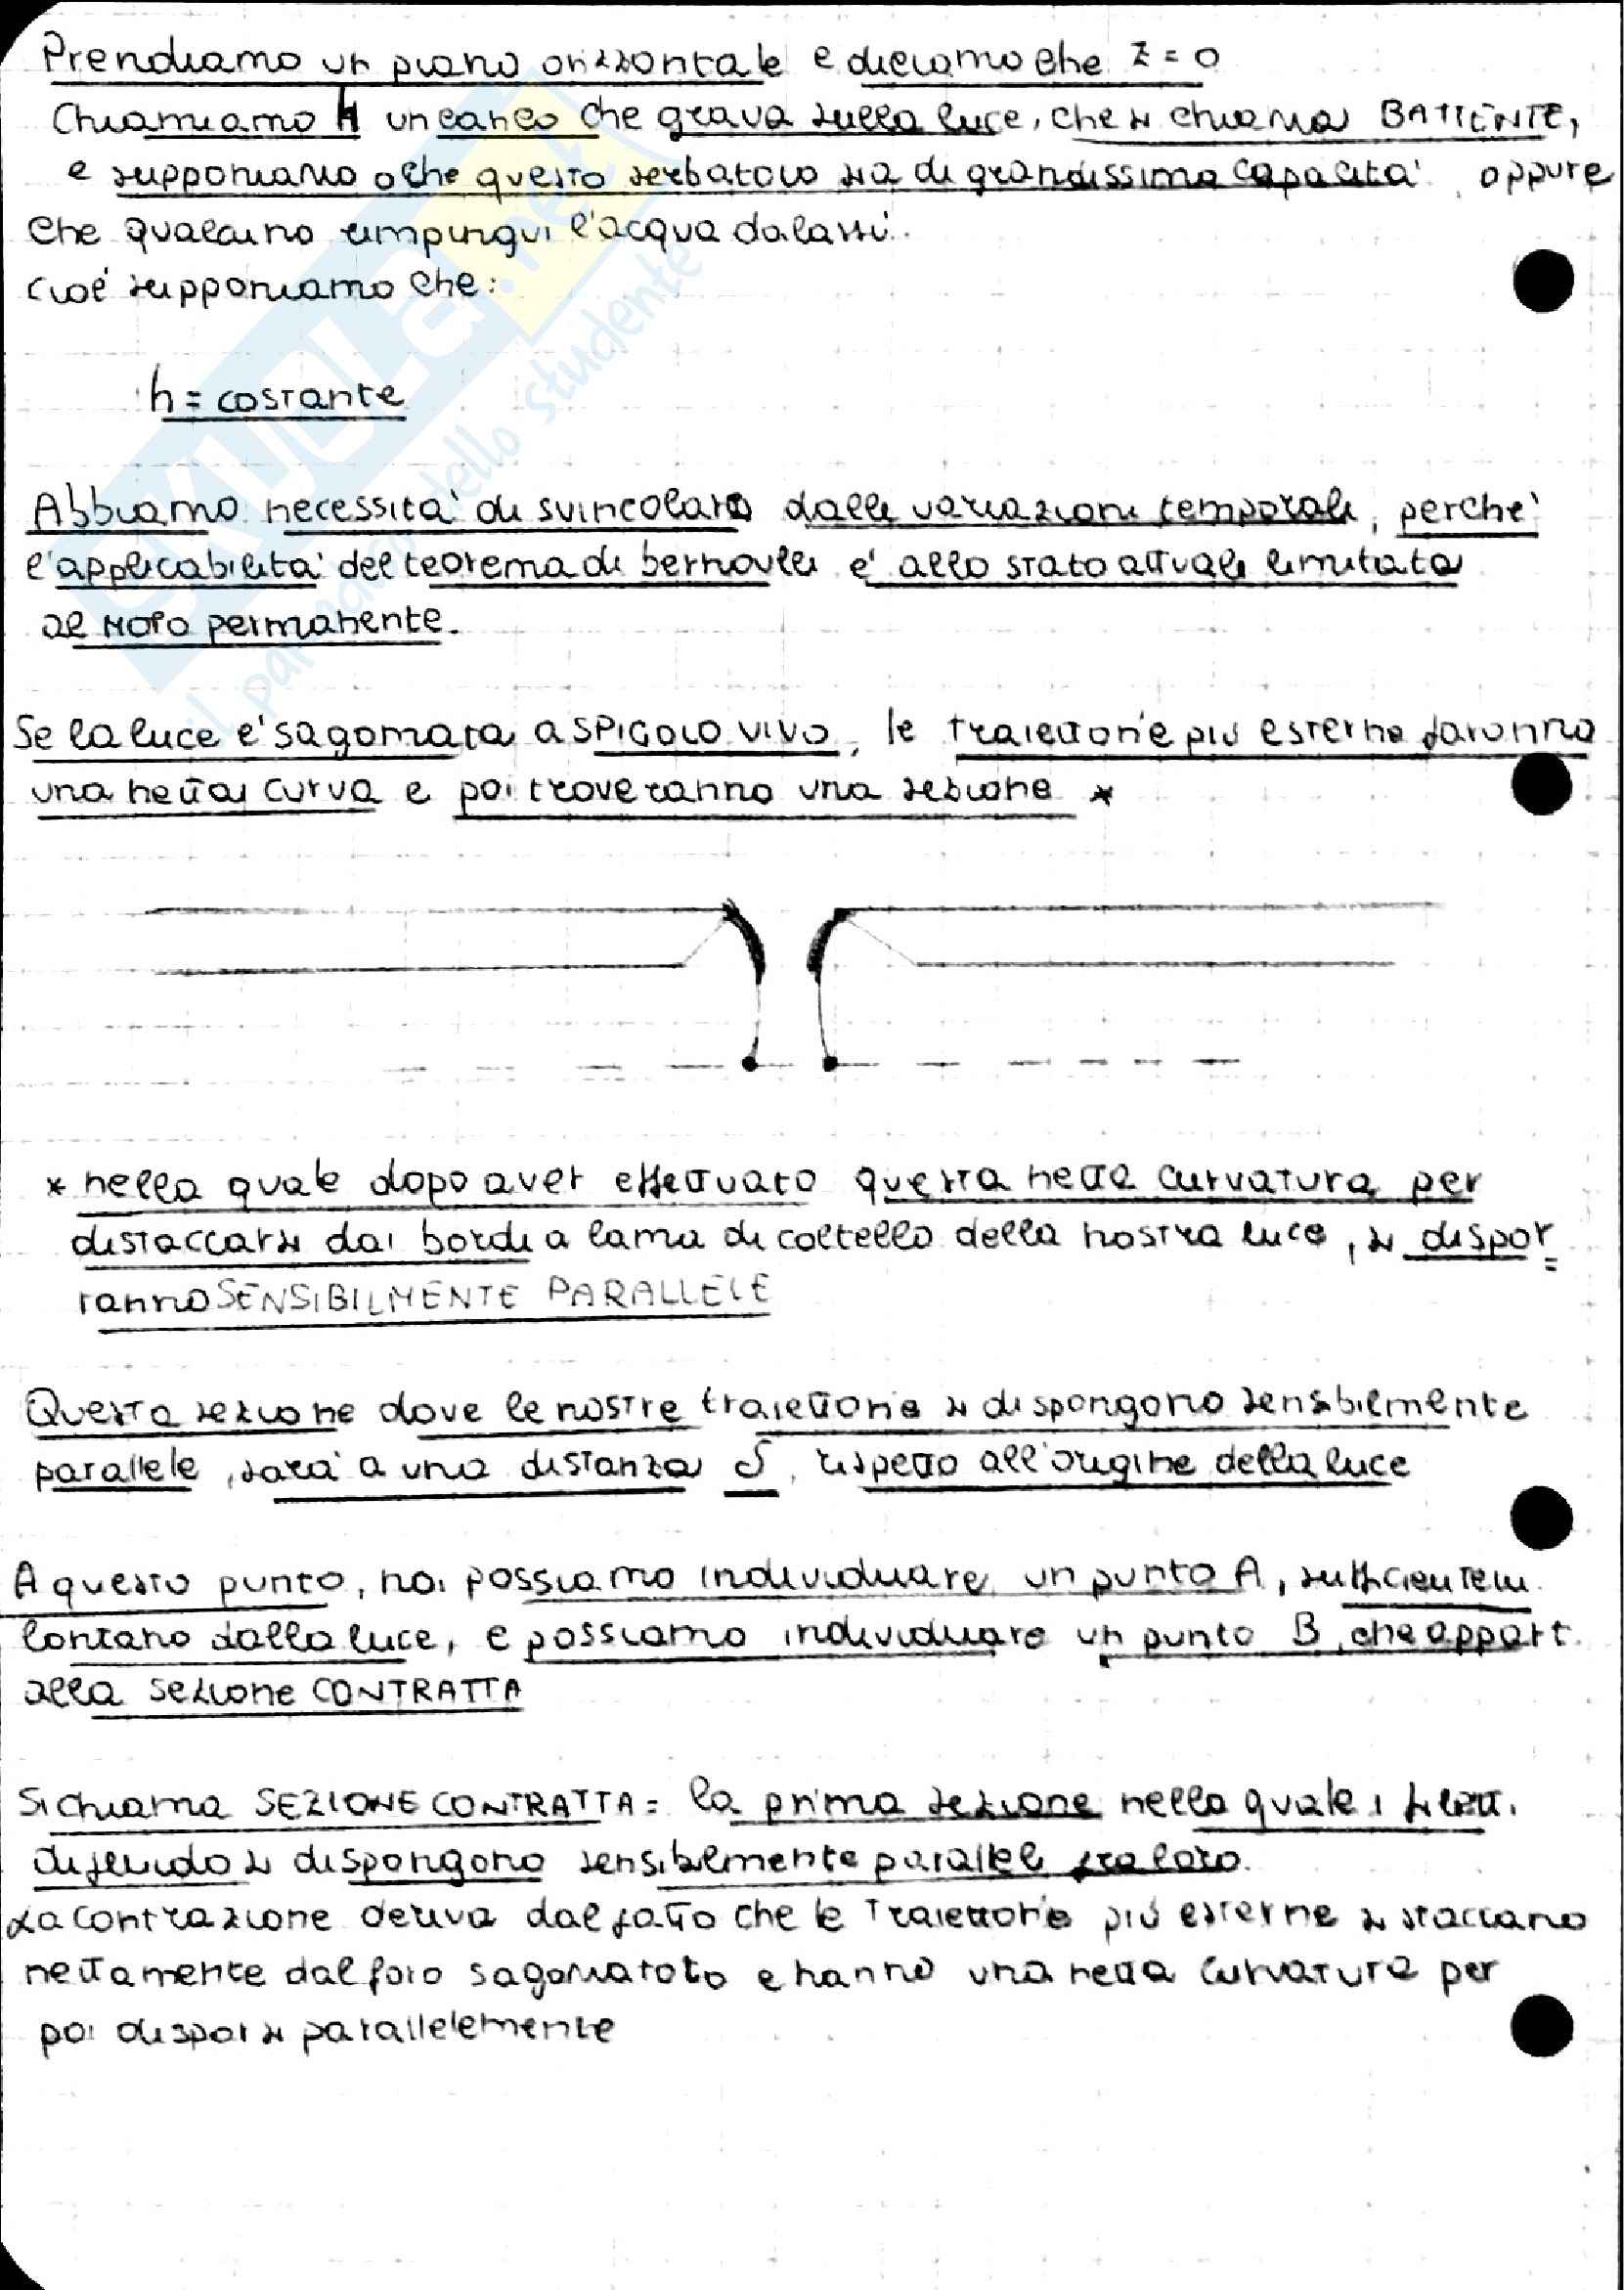 Prendiamo un piano orizzontale e diciamo che z = 0
Chiamiamo h un carico che grava sulla luce, che si chiama BATTENTE,
e supponiamo o che questo serbatoio sia di grandissima capacita' oppure
che qualcuno rimpingui l'acqua da lassu'.
Cioe' supponiamo che:
h = costante
Abbiamo necessita' di svincolarci dalle variazioni temporali, perche'
l'applicabilita' del teorema di bernoulli e' allo stato attuale limitata
al moto permanente.
Se la luce e' sagomata a SPIGOLO VIVO, le traiettorie piu esterne faranno
una netta curva e poi troveranno una sezione *
* nella quale dopo aver effettuato questa netta curvatura per
distaccarsi dai bordi a lama di coltello della nostra luce, si dispor=
ranno SENSIBILMENTE PARALLELE
Questa sezione dove le nostre traiettorie si dispongono sensibilmente
parallele, sara' a una distanza δ, rispetto all'origine della luce
A questo punto, noi possiamo individuare un punto A, sufficientem.
lontano dalla luce, e possiamo individuare un punto B, che appart.
alla sezione CONTRATTA
Si chiama SEZIONE CONTRATTA = la prima sezione nella quale i filetti
di fluido si dispongono sensibilmente paralleli fra loro.
La contrazione deriva dal fatto che le traiettorie piu esterne si staccano
nettamente dal foro sagomato e hanno una netta curvatura per
poi disporsi parallelemente
SKUOLA.net
il paradiso dello studente